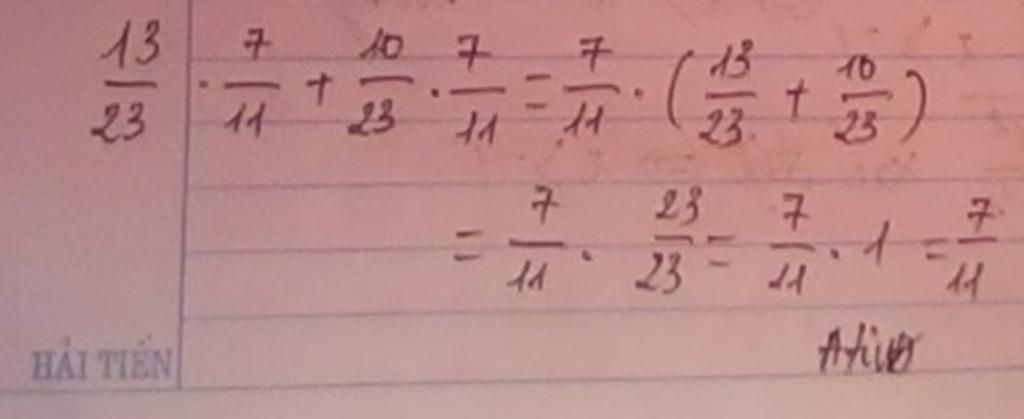 13/23 · 7/11 + 10/23 · 7/11 = 7/11 · (13/23 + 10/23)
= 7/11 · 23/23 = 7/11 · 1 = 7/11
HẢI TIẾN